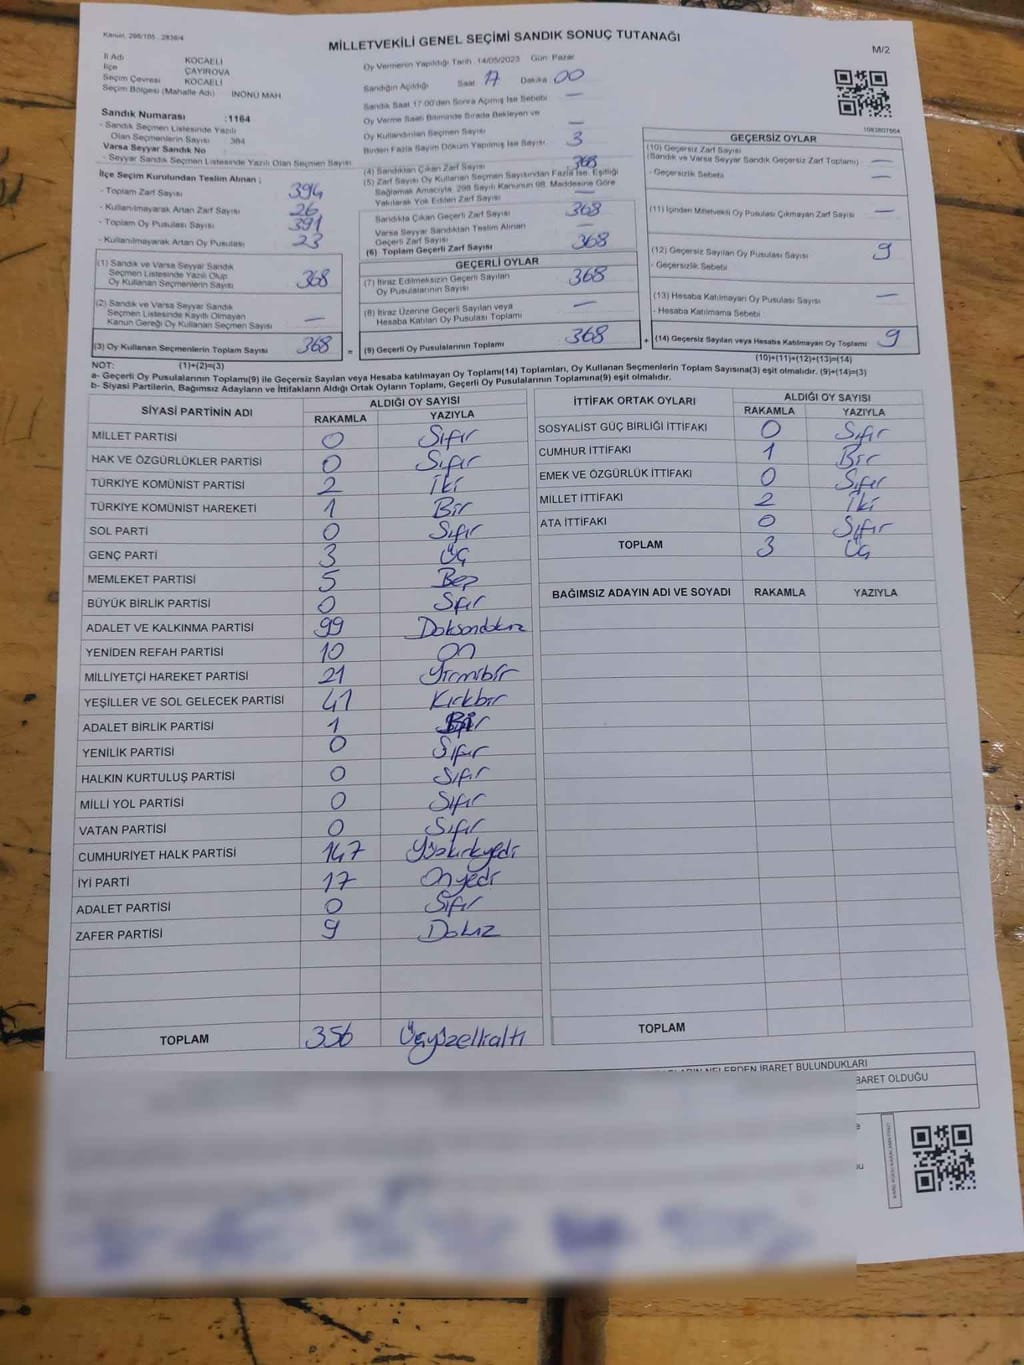 Kanun, 298/105 . 2839/4
MİLLETVEKİLİ GENEL SEÇİMİ SANDIK SONUÇ TUTANAĞI
M/2
İl Adı KOCAELİ
İlçe ÇAYIROVA
Seçim Çevresi KOCAELİ
Seçim Bölgesi (Mahalle Adı) İNÖNÜ MAH.
Sandık Numarası :1164
- Sandık Seçmen Listesinde Yazılı
Olan Seçmenlerin Sayısı 384
Varsa Seyyar Sandık No
- Seyyar Sandık Seçmen Listesinde Yazılı Olan Seçmen Sayısı
İlçe Seçim Kurulundan Teslim Alınan ;
- Toplam Zarf Sayısı 394
- Kullanılmayarak Artan Zarf Sayısı 26
- Toplam Oy Pusulası Sayısı 391
- Kullanılmayarak Artan Oy Pusulası 23
(1) Sandık ve Varsa Seyyar Sandık
Seçmen Listesinde Yazılı Olup
Oy Kullanan Seçmenlerin Sayısı 368
(2) Sandık ve Varsa Seyyar Sandık
Seçmen Listesinde Kayıtlı Olmayan
Kanun Gereği Oy Kullanan Seçmen Sayısı —
(3) Oy Kullanan Seçmenlerin Toplam Sayısı 368 =
Oy Vermenin Yapıldığı Tarih :14/05/2023 Gün: Pazar
Sandığın Açıldığı Saat 17 Dakika 00
Sandık Saat 17.00'den Sonra Açılmış İse Sebebi —
Oy Verme Saati Bitiminde Sırada Bekleyen ve
Oy Kullandırılan Seçmen Sayısı —
Birden Fazla Sayım Döküm Yapılmış İse Sayısı 3
(4) Sandıktan Çıkan Zarf Sayısı 368
(5) Zarf Sayısı Oy Kullanan Seçmen Sayısından Fazla İse, Eşitliği
Sağlamak Amacıyla, 298 Sayılı Kanunun 98. Maddesine Göre
Yakılarak Yok Edilen Zarf Sayısı —
Sandıkta Çıkan Geçerli Zarf Sayısı 368
Varsa Seyyar Sandıktan Teslim Alınan
Geçerli Zarf Sayısı —
(6) Toplam Geçerli Zarf Sayısı 368
GEÇERLİ OYLAR
(7) İtiraz Edilmeksizin Geçerli Sayılan
Oy Pusulalarının Sayısı 368
(8) İtiraz Üzerine Geçerli Sayılan veya
Hesaba Katılan Oy Pusulası Toplamı —
(9) Geçerli Oy Pusulalarının Toplamı 368 +
1083807664
GEÇERSİZ OYLAR
(10) Geçersiz Zarf Sayısı
(Sandık ve Varsa Seyyar Sandık Geçersiz Zarf Toplamı) —
- Geçersizlik Sebebi —
(11) İçinden Milletvekili Oy Pusulası Çıkmayan Zarf Sayısı —
(12) Geçersiz Sayılan Oy Pusulası Sayısı 9
- Geçersizlik Sebebi
(13) Hesaba Katılmayan Oy Pusulası Sayısı —
- Hesaba Katılmama Sebebi
(14) Geçersiz Sayılan veya Hesaba Katılmayan Oy Toplamı 9
NOT: (1)+(2)=(3) (10)+(11)+(12)+(13)=(14)
a- Geçerli Oy Pusulalarının Toplamı(9) ile Geçersiz Sayılan veya Hesaba katılmayan Oy Toplamı(14) Toplamları, Oy Kullanan Seçmenlerin Toplam Sayısına(3) eşit olmalıdır. (9)+(14)=(3)
b- Siyasi Partilerin, Bağımsız Adayların ve İttifakların Aldığı Ortak Oyların Toplamı, Geçerli Oy Pusulalarının Toplamına(9) eşit olmalıdır.
SİYASİ PARTİNİN ADI ALDIĞI OY SAYISI
RAKAMLA YAZIYLA
MİLLET PARTİSİ 0 Sıfır
HAK VE ÖZGÜRLÜKLER PARTİSİ 0 Sıfır
TÜRKİYE KOMÜNİST PARTİSİ 2 İki
TÜRKİYE KOMÜNİST HAREKETİ 1 Bir
SOL PARTİ 0 Sıfır
GENÇ PARTİ 3 Üç
MEMLEKET PARTİSİ 5 Beş
BÜYÜK BİRLİK PARTİSİ 0 Sıfır
ADALET VE KALKINMA PARTİSİ 99 Doksandokuz
YENİDEN REFAH PARTİSİ 10 On
MİLLİYETÇİ HAREKET PARTİSİ 21 Yirmibir
YEŞİLLER VE SOL GELECEK PARTİSİ 41 Kırkbir
ADALET BİRLİK PARTİSİ 1 Bir
YENİLİK PARTİSİ 0 Sıfır
HALKIN KURTULUŞ PARTİSİ 0 Sıfır
MİLLİ YOL PARTİSİ 0 Sıfır
VATAN PARTİSİ 0 Sıfır
CUMHURİYET HALK PARTİSİ 147 Yüzkırkyedi
İYİ PARTİ 17 Onyedi
ADALET PARTİSİ 0 Sıfır
ZAFER PARTİSİ 9 Dokuz
TOPLAM 356 Üçyüzellialtı
İTTİFAK ORTAK OYLARI ALDIĞI OY SAYISI
RAKAMLA YAZIYLA
SOSYALİST GÜÇ BİRLİĞİ İTTİFAKI 0 Sıfır
CUMHUR İTTİFAKI 1 Bir
EMEK VE ÖZGÜRLÜK İTTİFAKI 0 Sıfır
MİLLET İTTİFAKI 2 İki
ATA İTTİFAKI 0 Sıfır
TOPLAM 3 Üç
BAĞIMSIZ ADAYIN ADI VE SOYADI RAKAMLA YAZIYLA
TOPLAM
NELERDEN İBARET BULUNDUKLARI
BARET OLDUĞU